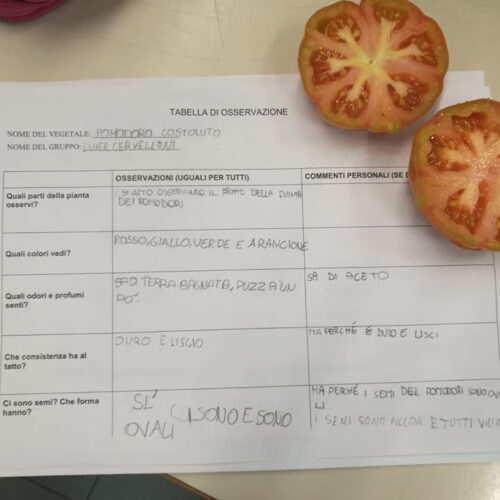 TABELLA DI OSSERVAZIONE
NOME DEL VEGETALE: POMODORO COSTOLUTO
NOME DEL GRUPPO: SUPER CERVELLONI
OSSERVAZIONI (UGUALI PER TUTTI)
COMMENTI PERSONALI (SE
Quali parti della pianta
osservi?
STIAMO OSSERVANDO IL DELLA
DEI POMODORI
Quali colori vedi?
ROSSO, GIALLO, VERDE E ARANCIONE
Quali odori e profumi
senti?
SA DI TERRA BAGNATA, PUZZA UN
PO'.
SA DI ACETO
Che consistenza ha al
tatto?
DURO E LISCIO
MA PERCHÉ É DURO E LISCI
Ci sono semi? Che forma
hanno?
SI' CI SONO E SONO
OVALI
MA PERCHÉ I SEMI DEL POMODORI SONO OVA
LI
I SEMI SONO E TUTTI VICINI